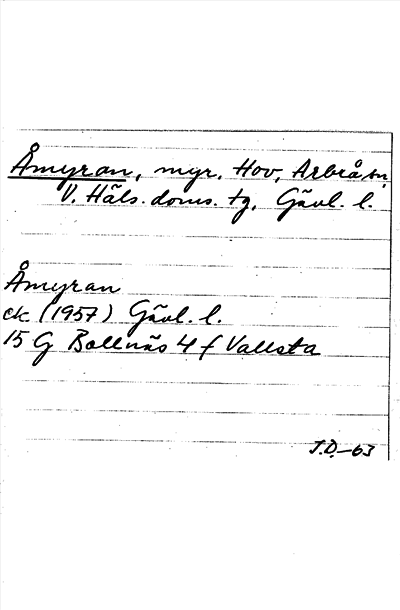 Åmyran, myr, Hov, Arbrå sn,
V. Häls. doms. tg, Gävl. l.
Åmyran
ek (1957) Gävl. l.
15 G Bollnäs 4 f Vallsta
J.D.-63